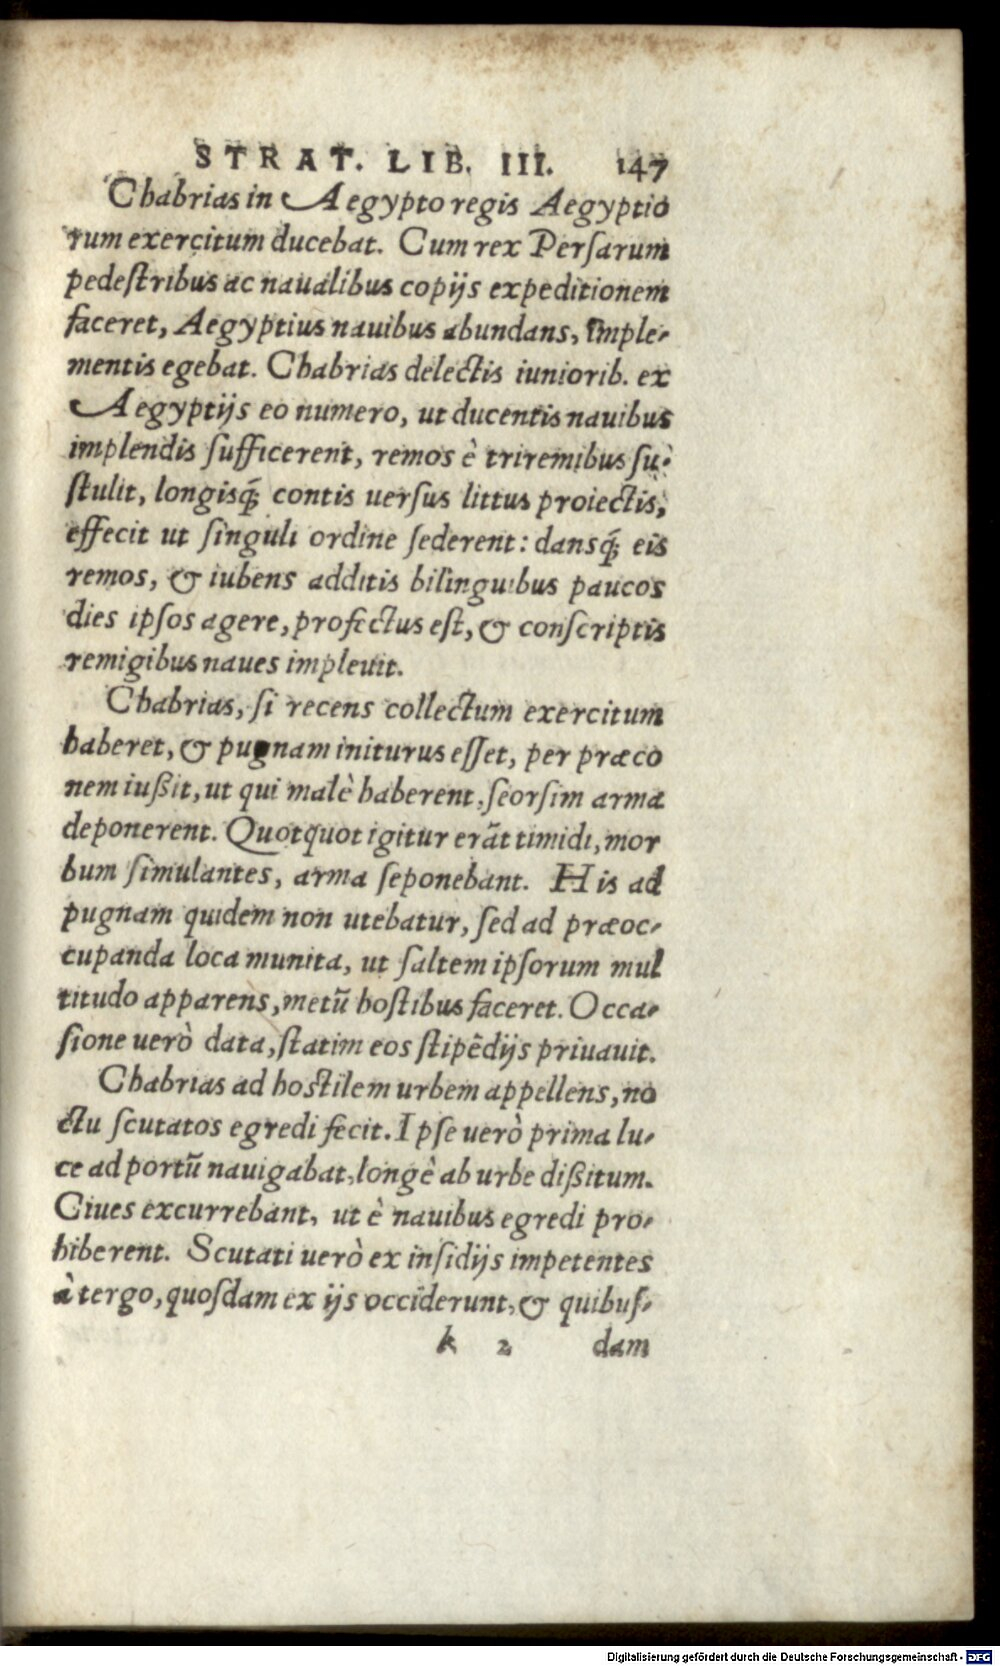 STRAT. LIB. III. 147
Chabrias in Aegypto regis Aegyptio
rum exercitum ducebat. Cum rex Perſarum
pedeſtribus ac naualibus copijs expeditionem
faceret, Aegyptius nauibus abundans, imple-
mentis egebat. Chabrias delectis iuniorib. ex
Aegyptijs eo numero, ut ducentis nauibus
implendis ſufficerent, remos è triremibus ſu-
ſtulit, longisq́; contis uerſus littus proiectis,
effecit ut ſinguli ordine ſederent: dansq́; eis
remos, & iubens additis bilinguibus paucos
dies ipſos agere, profectus eſt, & conſcriptis
remigibus naues impleuit.
Chabrias, ſi recens collectum exercitum
haberet, & pugnam initurus eſſet, per præco
nem iußit, ut qui malè haberent, ſeorſim arma
deponerent. Quotquot igitur erāt timidi, mor
bum ſimulantes, arma ſeponebant. His ad
pugnam quidem non utebatur, ſed ad præoc-
cupanda loca munita, ut ſaltem ipſorum mul
titudo apparens, metū hoſtibus faceret. Occa-
ſione uerò data, ſtatim eos ſtipēdijs priuauit.
Chabrias ad hoſtilem urbem appellens, no
ctu ſcutatos egredi fecit. Ipſe uerò prima lu-
ce ad portū nauigabat, longè ab urbe dißitum.
Ciues excurrebant, ut è nauibus egredi pro-
hiberent. Scutati uerò ex inſidijs impetentes
à tergo, quoſdam ex ijs occiderunt, & quibuſ-
k 2 dam
Digitalisierung gefördert durch die Deutsche Forschungsgemeinschaft - DFG